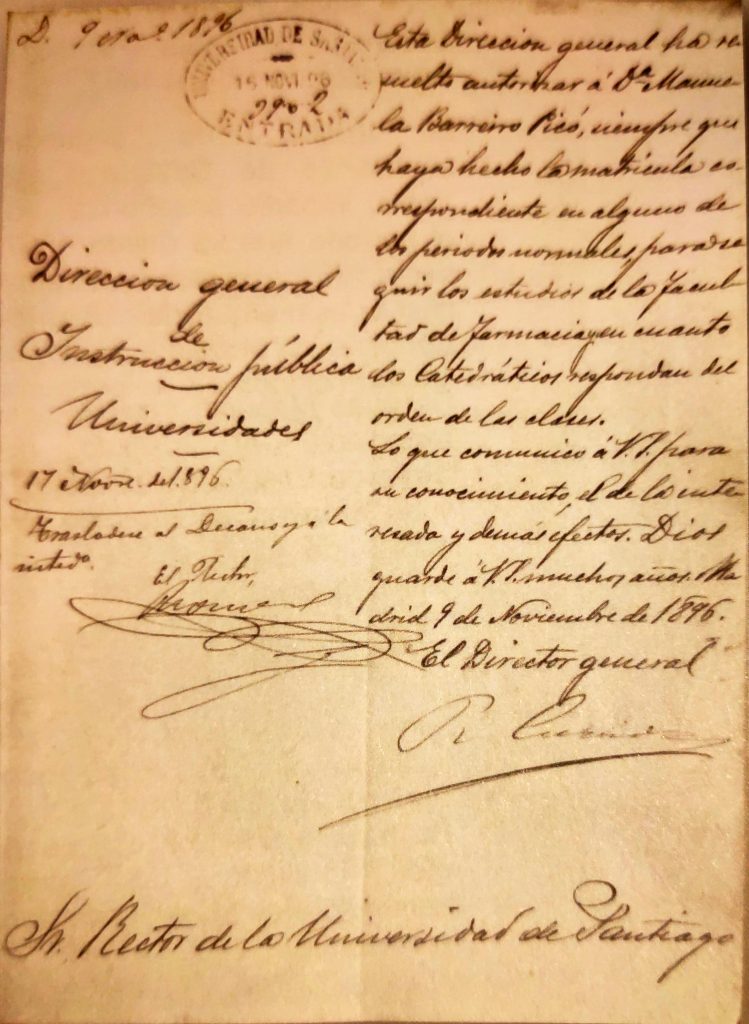 D. 9 1896
UNIVERSIDAD DE SANTIAGO
16 NOV 96
ENTRADA
Direccion general
de
Instruccion pública
Universidades
17 Novre. de 1.896.
Trasladese al Decano y á la
inteda.
El Rector,
Esta Direccion general ha re-
suelto autorizar á Da. Manue-
la Barreiro Picó, siempre que
haya hecho la matrícula co-
rrespondiente en alguno de
los periodos normales, para se-
guir los estudios de la Facul-
tad de Farmacia, y en cuanto
los Catedráticos respondan del
orden de las clases.
Lo que comunico á V.I. para
su conocimiento, el de la inte-
resada y demás efectos. Dios
guarde á V.I. muchos años. Ma-
drid 9 de Noviembre de 1896.
El Director general
Sr. Rector de la Universidad de Santiago